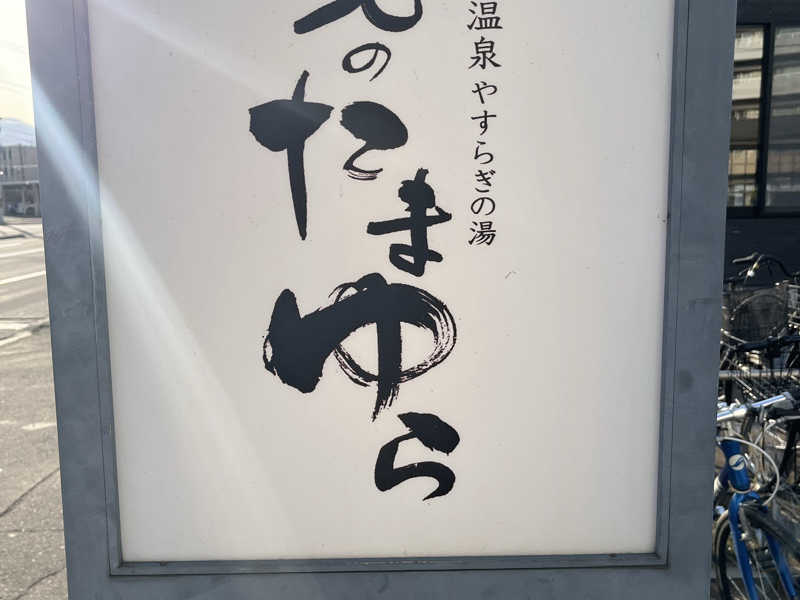 温泉 やすらぎの湯
のたまゆら